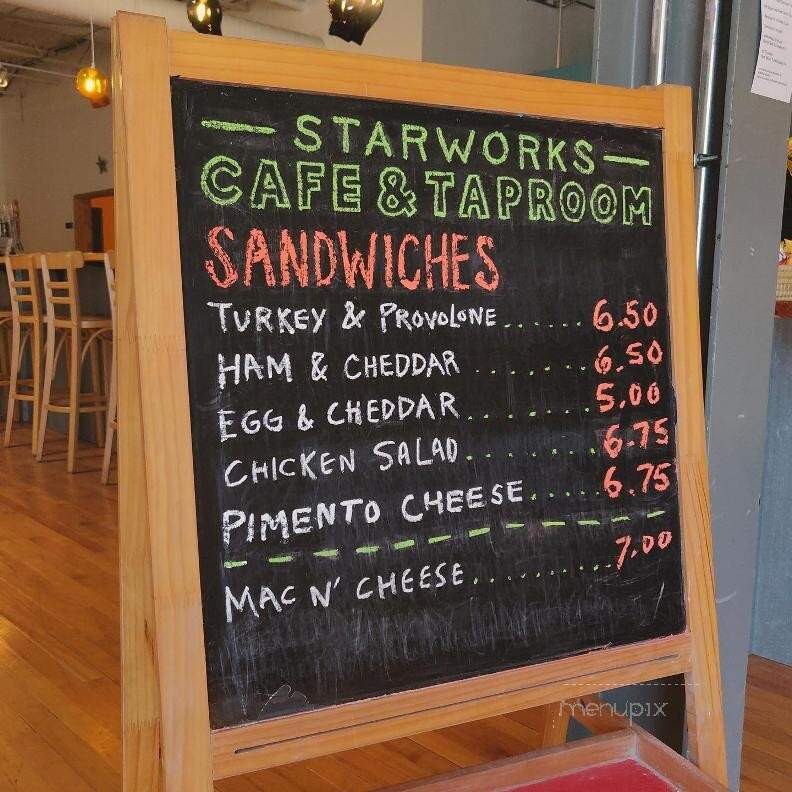 STARWORKS
CAFE & TAPROOM
SANDWICHES
TURKEY & PROVOLONE...... 6.50
HAM & CHEDDAR ....... 6.50
EGG & CHEDDAR....... 5.00
CHICKEN SALAD....... 6.75
PIMENTO CHEESE..... 6.75
MAC N' CHEESE.......... 7.00
menupix